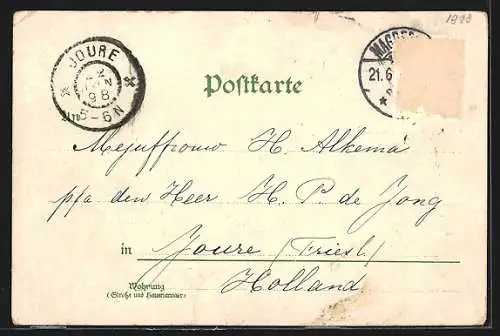 1898
JOURE
98
5-6N
MAGDEB
21.6
Postkarte
An
Mejuffrouw H. Alkema
p/a den Heer H. P. de Jong
in Joure (Friesl.)
Holland
Wohnung
(Straße und Hausnummer)